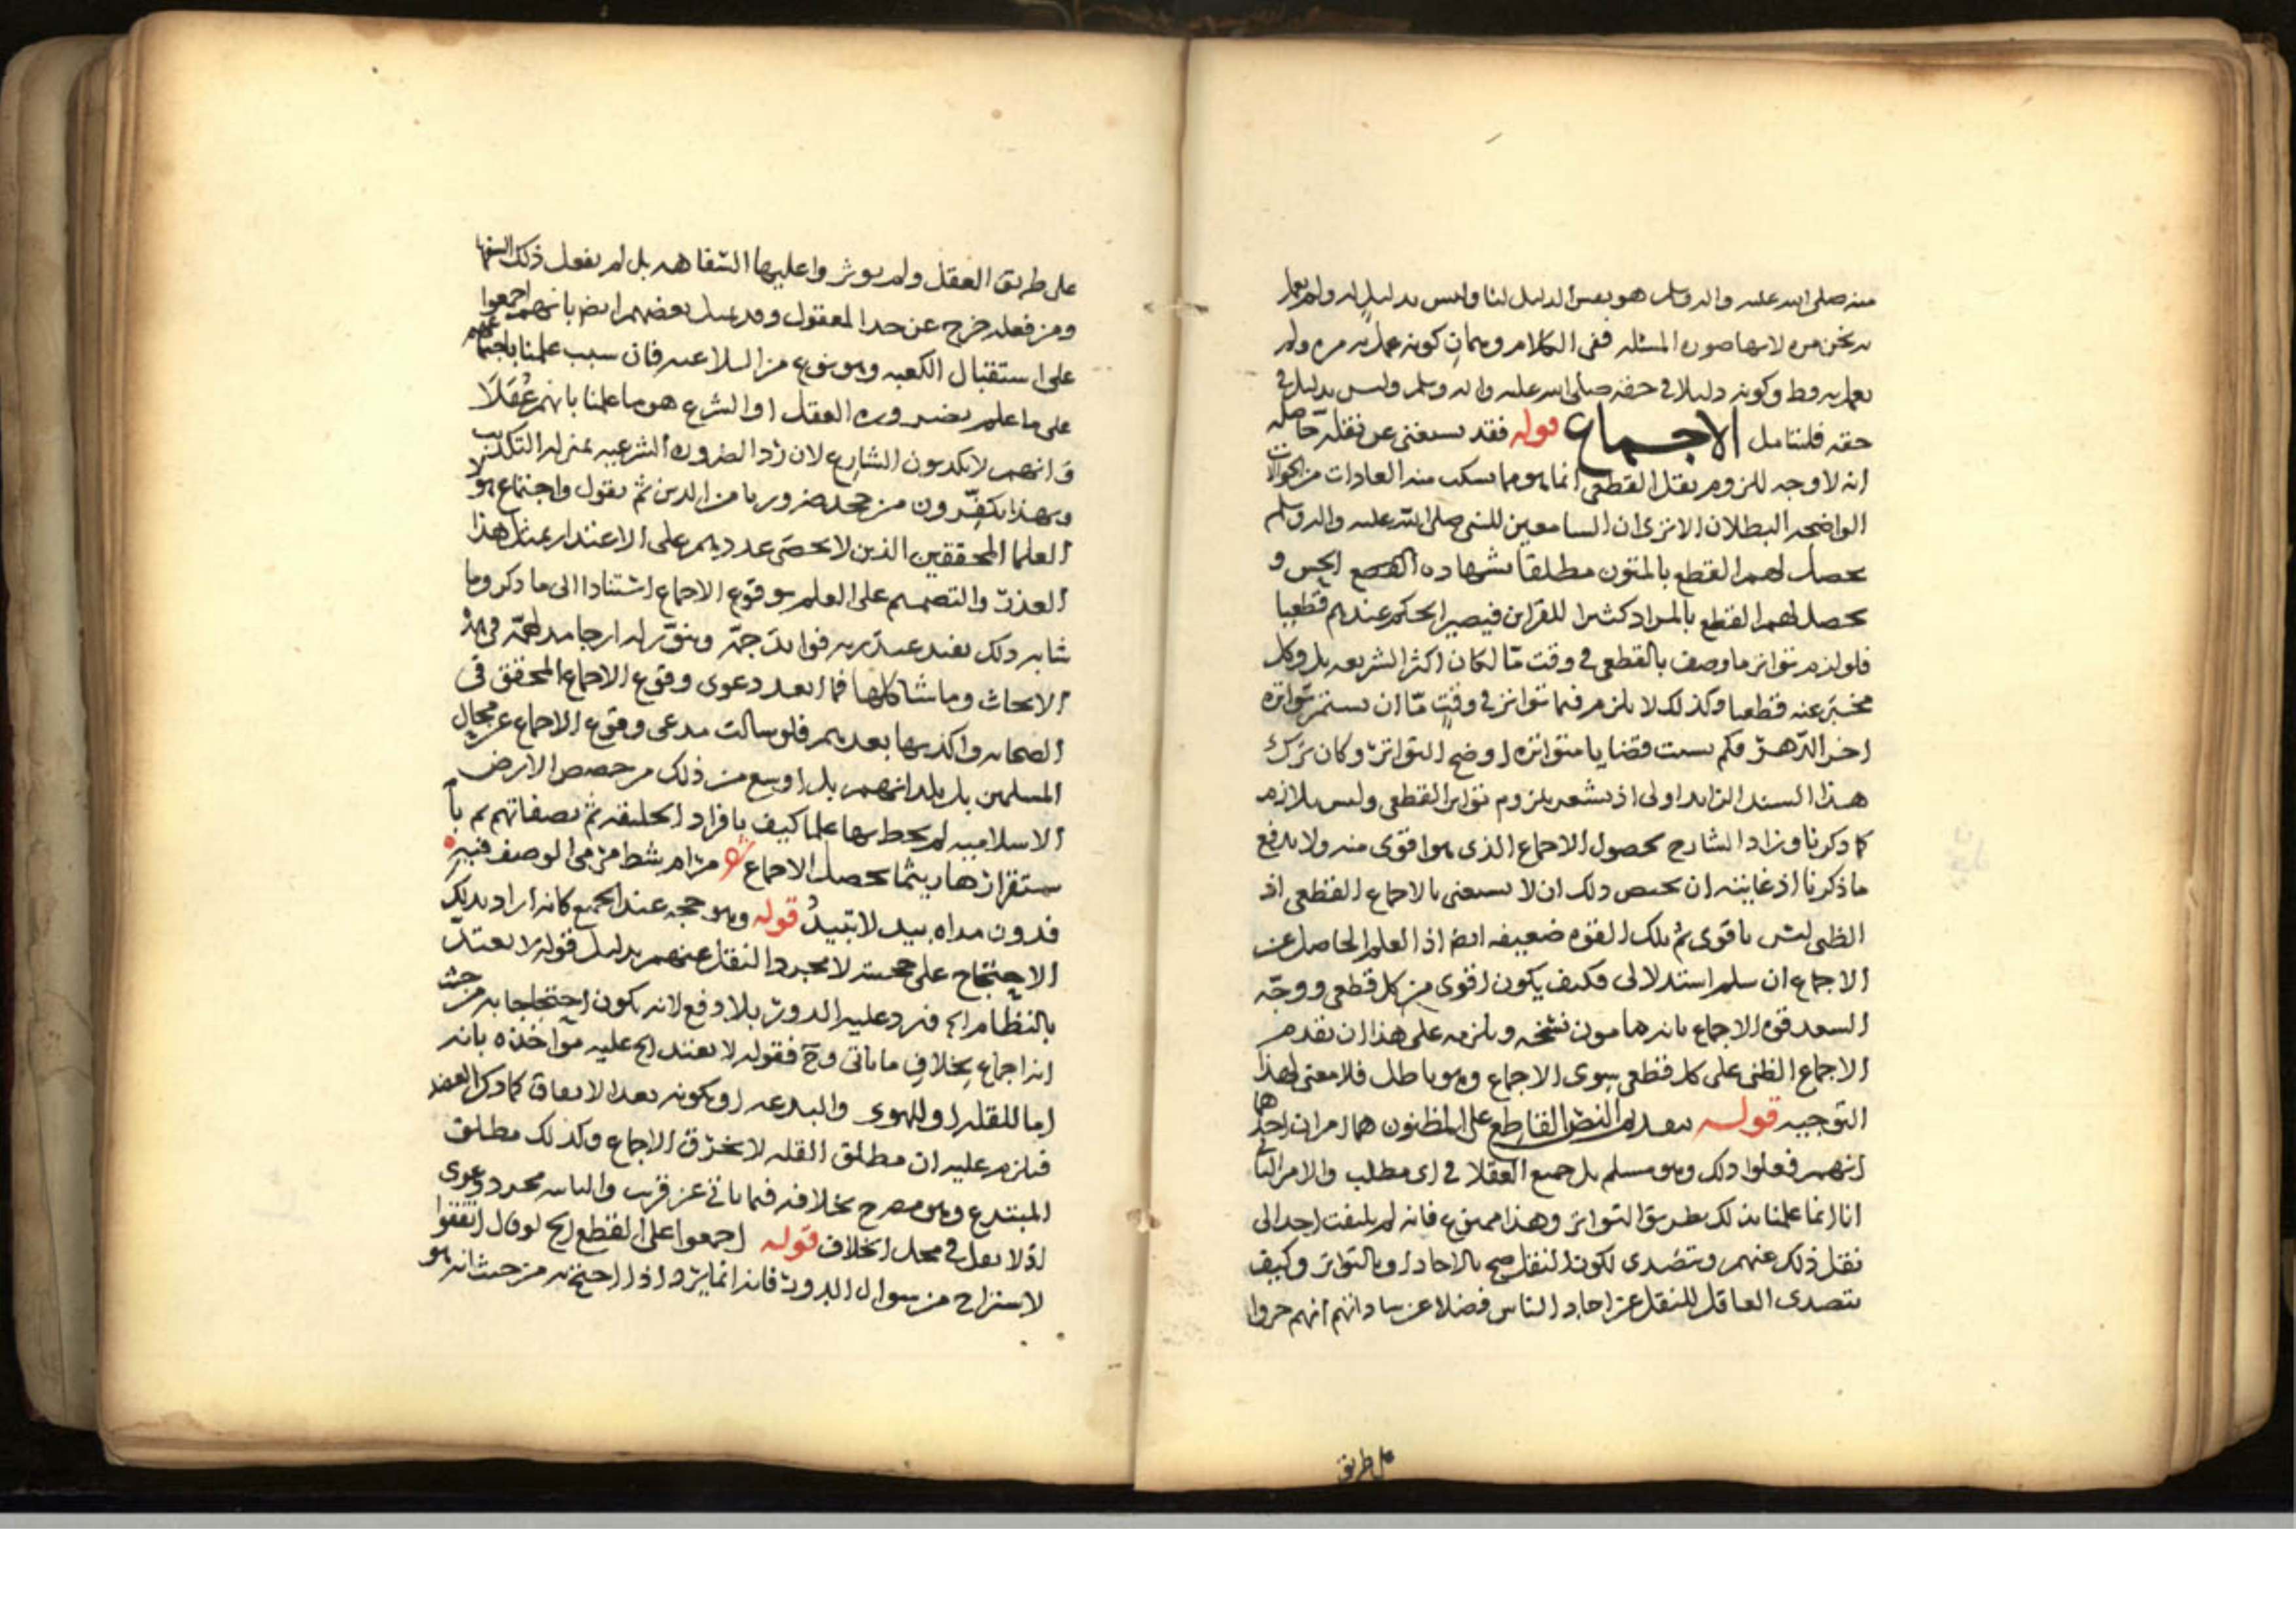 منه صلى الله عليه واله وسلم هو نفس الدليل لنا وليس بدليل له ولم نعمل
به نحن مره لانها صوره المسئله ففى الكلام وهمان كونه عمل به مره ولم
نعمل به قط وكونه دليلا في حقه صلى الله عليه واله وسلم وليس بدليل في
حقه فلنتامل الاجماع قوله فقد يستغنى عن نقله حاصله
انه لا وجه للزوم نقل القطعى انما هو مما منه العادات من
الواضحه البطلان الا ترى ان السامعين للنبي صلى الله عليه واله وسلم
يحصل لهم القطع بالمتون مطلقا بشهادة الحس و
يحصل لهم القطع بالمراد كثيرا للقراين فيصير الحكم عندهم قطعيا
فلو لزم تواتر ما وصف بالقطعى في وقت مّا لكان اكثر الشريعه بل وكل
مخبر عنه قطعيا وكذلك لا يلزم فيما تواتر في وقت مّا ان يستمر تواتره
اخر الدّهر فكم نسيت قضايا متواتره اوضح التواتر وكان ترك
هذا السند الزايد اولى اذ يشعر بلزوم تواتر القطعى وليس بلازم
كما ذكرنا وزاد الشارح بحصول الاجماع الذى هو اقوى منه ولا يدفع
ما ذكرنا اذ غايته ان يخص ذلك ان لا يستغنى بالاجماع القطعى اذ
الظنى ليس باقوى ثم تلك القوه ضعيفه ايضا اذ العلم الحاصل عن
الاجماع ان سلم استدلالى فكيف يكون اقوى من كل قطعى ووجّه
السعد قوه الاجماع بانه مامون نسخه ويلزمه على هذا ان يقدم
الاجماع الظنى على كل قطعى سوى الاجماع وهو باطل فلا معنى لهذا
التوجيه قوله تقديم النص القاطع على المظنون هما امران احدهما
انهم فعلوا ذلك وهو مسلم بل جميع العقلا في اى مطلب والامر الثانى
انا انما علمنا بذلك بطريق التواتر وهذا ممنوع فانه لم يلتفت احد الى
نقل ذلك عنهم وتصدى لكون النقل صح بالاحاد او بالتواتر وكيف
يتصدى العاقل للنقل عن احاد الناس فضلا عن ساداتهم انهم جروا
على طريق
على طريق العقل ولم يوثروا عليها السّفاهه بل لم يفعل ذلك السفها
ومن فعله خرج عن حد المعقول وقد بعضهم ايضا بانهم اجمعوا
على استقبال الكعبه وهو نوع من السلاعب فان سبب علمنا باجماعهم
على ما علم بضروره العقل او الشرع هو ما علمنا بانهم عُقَلا
وَانهم لا يكذبون الشارع لان رد الضروره الشرعيه بمنزله التكذيب
وبهذا يكفّرون من جحد ضروريا من الدين ثم نقول واجتماع هولا
العلما المحققين الذين لا يحصى عددهم على الاعتذار بمثل هذا
العذر والتصميم على العلم بوقوع الاجماع استنادا الى ما ذكر وما
شابه ذلك يفيد فوايد جمّه ارجا فى هذه
الابحاث وما شاكلها فما ابعد دعوى وقوع الاجماع المحقق فى
الصحابه واكذبها بعدهم فلو سالت مدعى وقوع الاجماع عن مجال
المسلمين بل بلدانهم بل اوسع من ذلك من حصص الارض
الاسلاميه لم يحط بها علما كيف بافراد الخليقه ثم بصفاتهم ثم با
ستقرارها ريثما يحصل الاجماع مرام شط مرمى الوصف فيه
فدون مداه بيد لا تبيدُ قوله وهو حجه عند الجميع كانه اراد بذلك
الاحتجاج على حجيته لا مجرد النقل عنهم بدليل قوله لا يعتدّ
بالنظّام الخ فيرد عليه الدور بلا دفع لانه يكون احتجاجا به من حيث
انه اجماع بخلاف ما ياتى وح فقوله لا يعتد الخ عليه مواخذه بانه
اما للقله او للهوى والبدعه او بكونه بعد الاتفاق كما ذكر العضد
فيلزم عليه ان مطلق القله لا يخرق الاجماع وكذلك مطلق
المبتدع وهو مصرح بخلافه فيما ياتى عن قريب والثانيه مجرد دعوى
اذ لا نقل في محل الخلاف قوله اجمعوا على القطع الخ لو قال اتفقوا
لاستراح من سوال الدور فانه انما يرد اذا احتج به من حيث انه هو